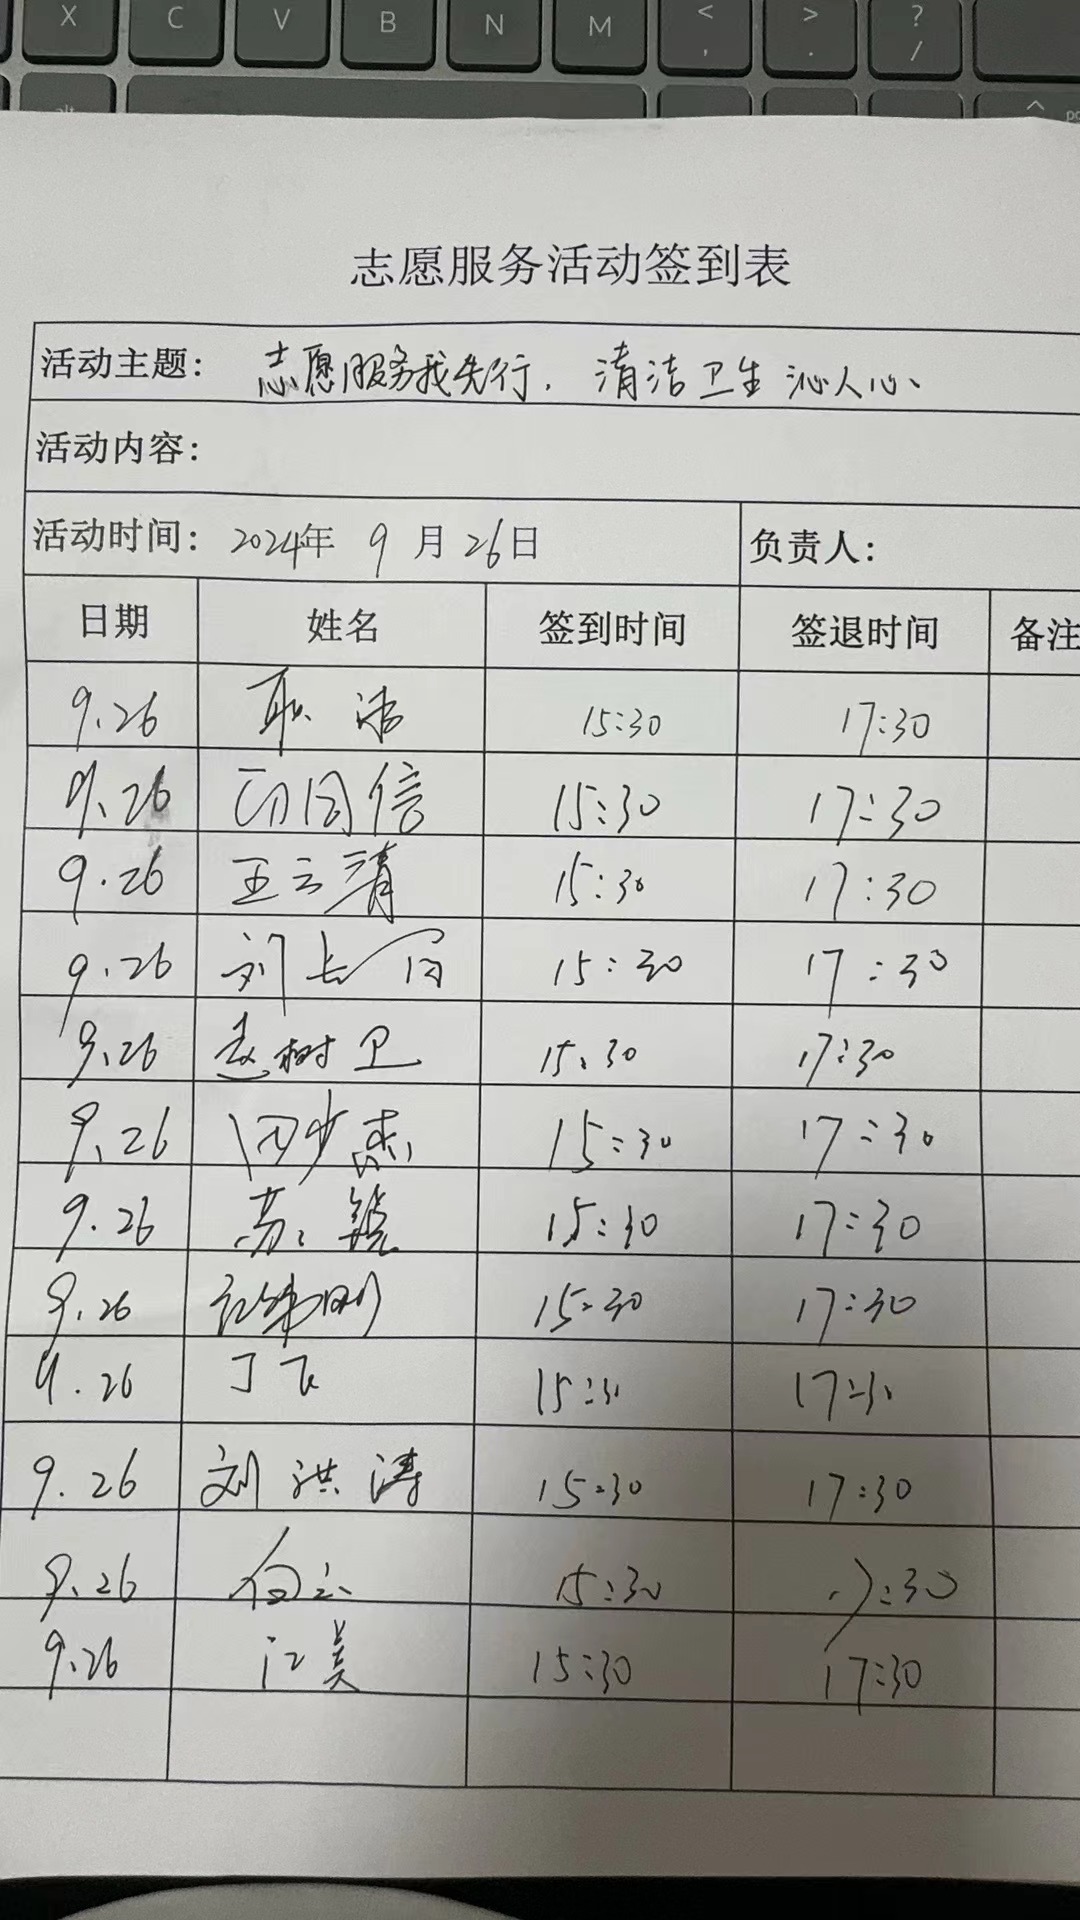 X C V B N M < , > . ? /
alt
志愿服务活动签到表
活动主题: 志愿服务我先行，清洁卫生 沁人心
活动内容:
活动时间: 2024年 9 月 26日 负责人:
日期 姓名 签到时间 签退时间 备注
9.26 耿 洁 15:30 17:30
9.26 15:30 17:30
9.26 王云清 15:30 17:30
9.26 刘长 15:30 17:30
9.26 赵树卫 15:30 17:30
9.26 15:30 17:30
9.26 15:30 17:30
9.26 15:30 17:30
9.26 丁飞 15:30 17:30
9.26 刘洪涛 15:30 17:30
9.26 15:30 17:30
9.26 江美 15:30 17:30